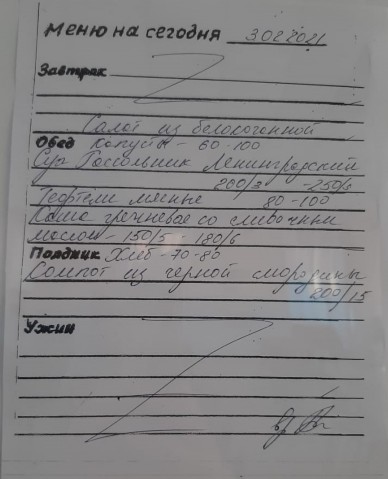 Меню на сегодня 3.02.2021
Завтрак
Салат из белокочанной
Обед капусты - 60-100
Суп Рассольник Ленинградский
200/3 - 250/6
Тефтели мясные 80-100
Каша гречневая со сливочным
маслом - 150/5 - 180/6
Полдник Хлеб - 70-80
Компот из черной смородины
200/15
Ужин